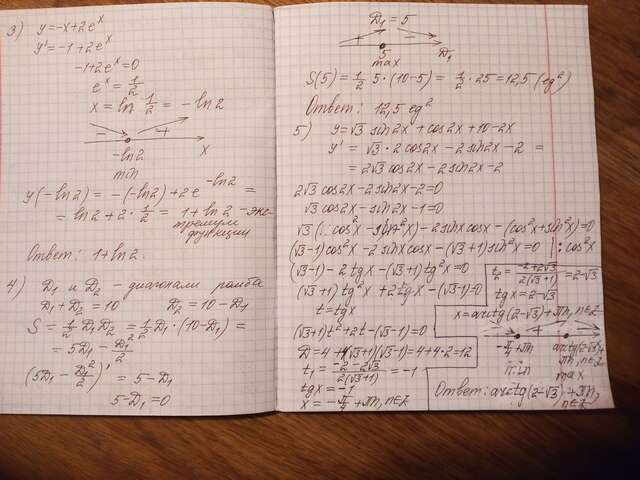 3) y=-x+2e^x
y'=-1+2e^x
-1+2e^x=0
e^x=1/2
x=ln 1/2 = -ln2
- + x
-ln2
min
y(-ln2)= -(-ln2)+2e^(-ln2) =
= ln2+2·1/2 = 1+ln2 - экс-
тремум
функции
Ответ: 1+ln2.
4) D₁ и D₂ - диагонали ромба
D₁+D₂=10 D₂=10-D₁
S=1/2 D₁D₂=1/2 D₁·(10-D₁)=
=5D₁-D₁²/2
(5D₁-D₁²/2)' = 5-D₁
5-D₁=0
D₁=5
+ - D₁
5
max
S(5)=1/2 5·(10-5)=1/2·25=12,5 (ед²)
Ответ: 12,5 ед²
5) y=√3 sin2x+cos2x+10-2x
y'=√3·2cos2x-2sin2x-2 =
=2√3cos2x-2sin2x-2
2√3cos2x-2sin2x-2=0
√3cos2x-sin2x-1=0
√3(cos²x-sin²x)-2sinxcosx-(cos²x+sin²x)=0
(√3-1)cos²x-2sinxcosx-(√3+1)sin²x=0 :cos²x
(√3-1)-2tgx-(√3+1)tg²x=0
(√3+1)tg²x+2tgx-(√3-1)=0
t=tgx
(√3+1)t²+2t-(√3-1)=0
D=4+4(√3+1)(√3-1)=4+4·2=12
t₁=(-2-2√3)/(2(√3+1))=-1
tgx=-1
x=-π/4+πn, n∈Z
t₂=(-2+2√3)/(2(√3+1))=2-√3
tgx=2-√3
x=arctg(2-√3)+πn, n∈Z
- + -
-π/4+πn
min
arctg(2-√3)+
πn, n∈Z
max
Ответ: arctg(2-√3)+πn,
n∈Z